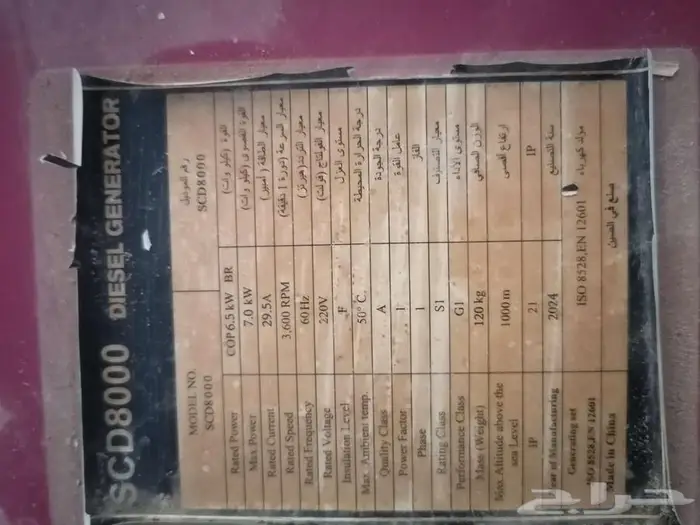 SCD8000 DIESEL GENERATOR
MODEL NO. رقم الموديل
SCD8000 SCD8000
Rated Power COP 6.5 kW BR القوة (كيلو وات)
Max Power 7.0 kW القوة القصوى (كيلو وات)
Rated Current 29.5A معيار الطاقة (أمبير)
Rated Speed 3,600 RPM معيار السرعة (دورة / دقيقة)
Rated Frequency 60Hz معيار التردد (هيرتز)
Rated Voltage 220V معيار الفولتاج (فولت)
Insulation Level F مستوى العزل
Max. Ambient temp. 50°C درجة الحرارة المحيطة
Quality Class A درجة الجودة
Power Factor 1 عامل القوة
Phase 1
Rating Class S1 معيار
Performance Class G1 مستوى الأداء
Mass (Weight) 120 kg الوزن الصافي
Max. Altitude above the sea Level 1000m إرتفاع أقصى
IP 21 IP
Year of Manufacturing 2024 سنة التصنيع
Generating set مولد كهرباء
ISO 8528,EN 12601 ISO 8528,EN 12601
Made in China صنع في الصين
حراج